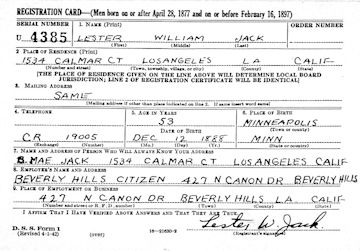 REGISTRATION CARD—(Men born on or after April 28, 1877 and on or before February 16, 1897)
SERIAL NUMBER 1. NAME (Print) ORDER NUMBER
U 4385 LESTER WILLIAM JACK
(First) (Middle) (Last)
2. PLACE OF RESIDENCE (Print)
1534 CALMAR CT LOS ANGELES L A CALIF
(Number and street) (Town, township, village, or city) (County) (State)
[THE PLACE OF RESIDENCE GIVEN ON THE LINE ABOVE WILL DETERMINE LOCAL BOARD
JURISDICTION; LINE 2 OF REGISTRATION CERTIFICATE WILL BE IDENTICAL]
3. MAILING ADDRESS
SAME
[Mailing address if other than place indicated on line 2. If same insert word same]
4. TELEPHONE 5. AGE IN YEARS 6. PLACE OF BIRTH
53 MINNEAPOLIS
DATE OF BIRTH (Town or county)
CR 19005 DEC 12 1888 MINN
(Exchange) (Number) (Mo.) (Day) (Yr.) (State or country)
7. NAME AND ADDRESS OF PERSON WHO WILL ALWAYS KNOW YOUR ADDRESS
S MAE JACK 1534 CALMAR CT LOS ANGELES CALIF
8. EMPLOYER'S NAME AND ADDRESS
BEVERLY HILLS CITIZEN 427 N CANON DR BEVERLY HILLS
9. PLACE OF EMPLOYMENT OR BUSINESS
427 N CANON DR BEVERLY HILLS L A CALIF
(Number and street or R. F. D. number) (Town) (County) (State)
I AFFIRM THAT I HAVE VERIFIED ABOVE ANSWERS AND THAT THEY ARE TRUE.
D. S. S. Form 1
(Revised 4-1-42) (over) 16—21630-2 Lester W. Jack
(Registrant's signature)